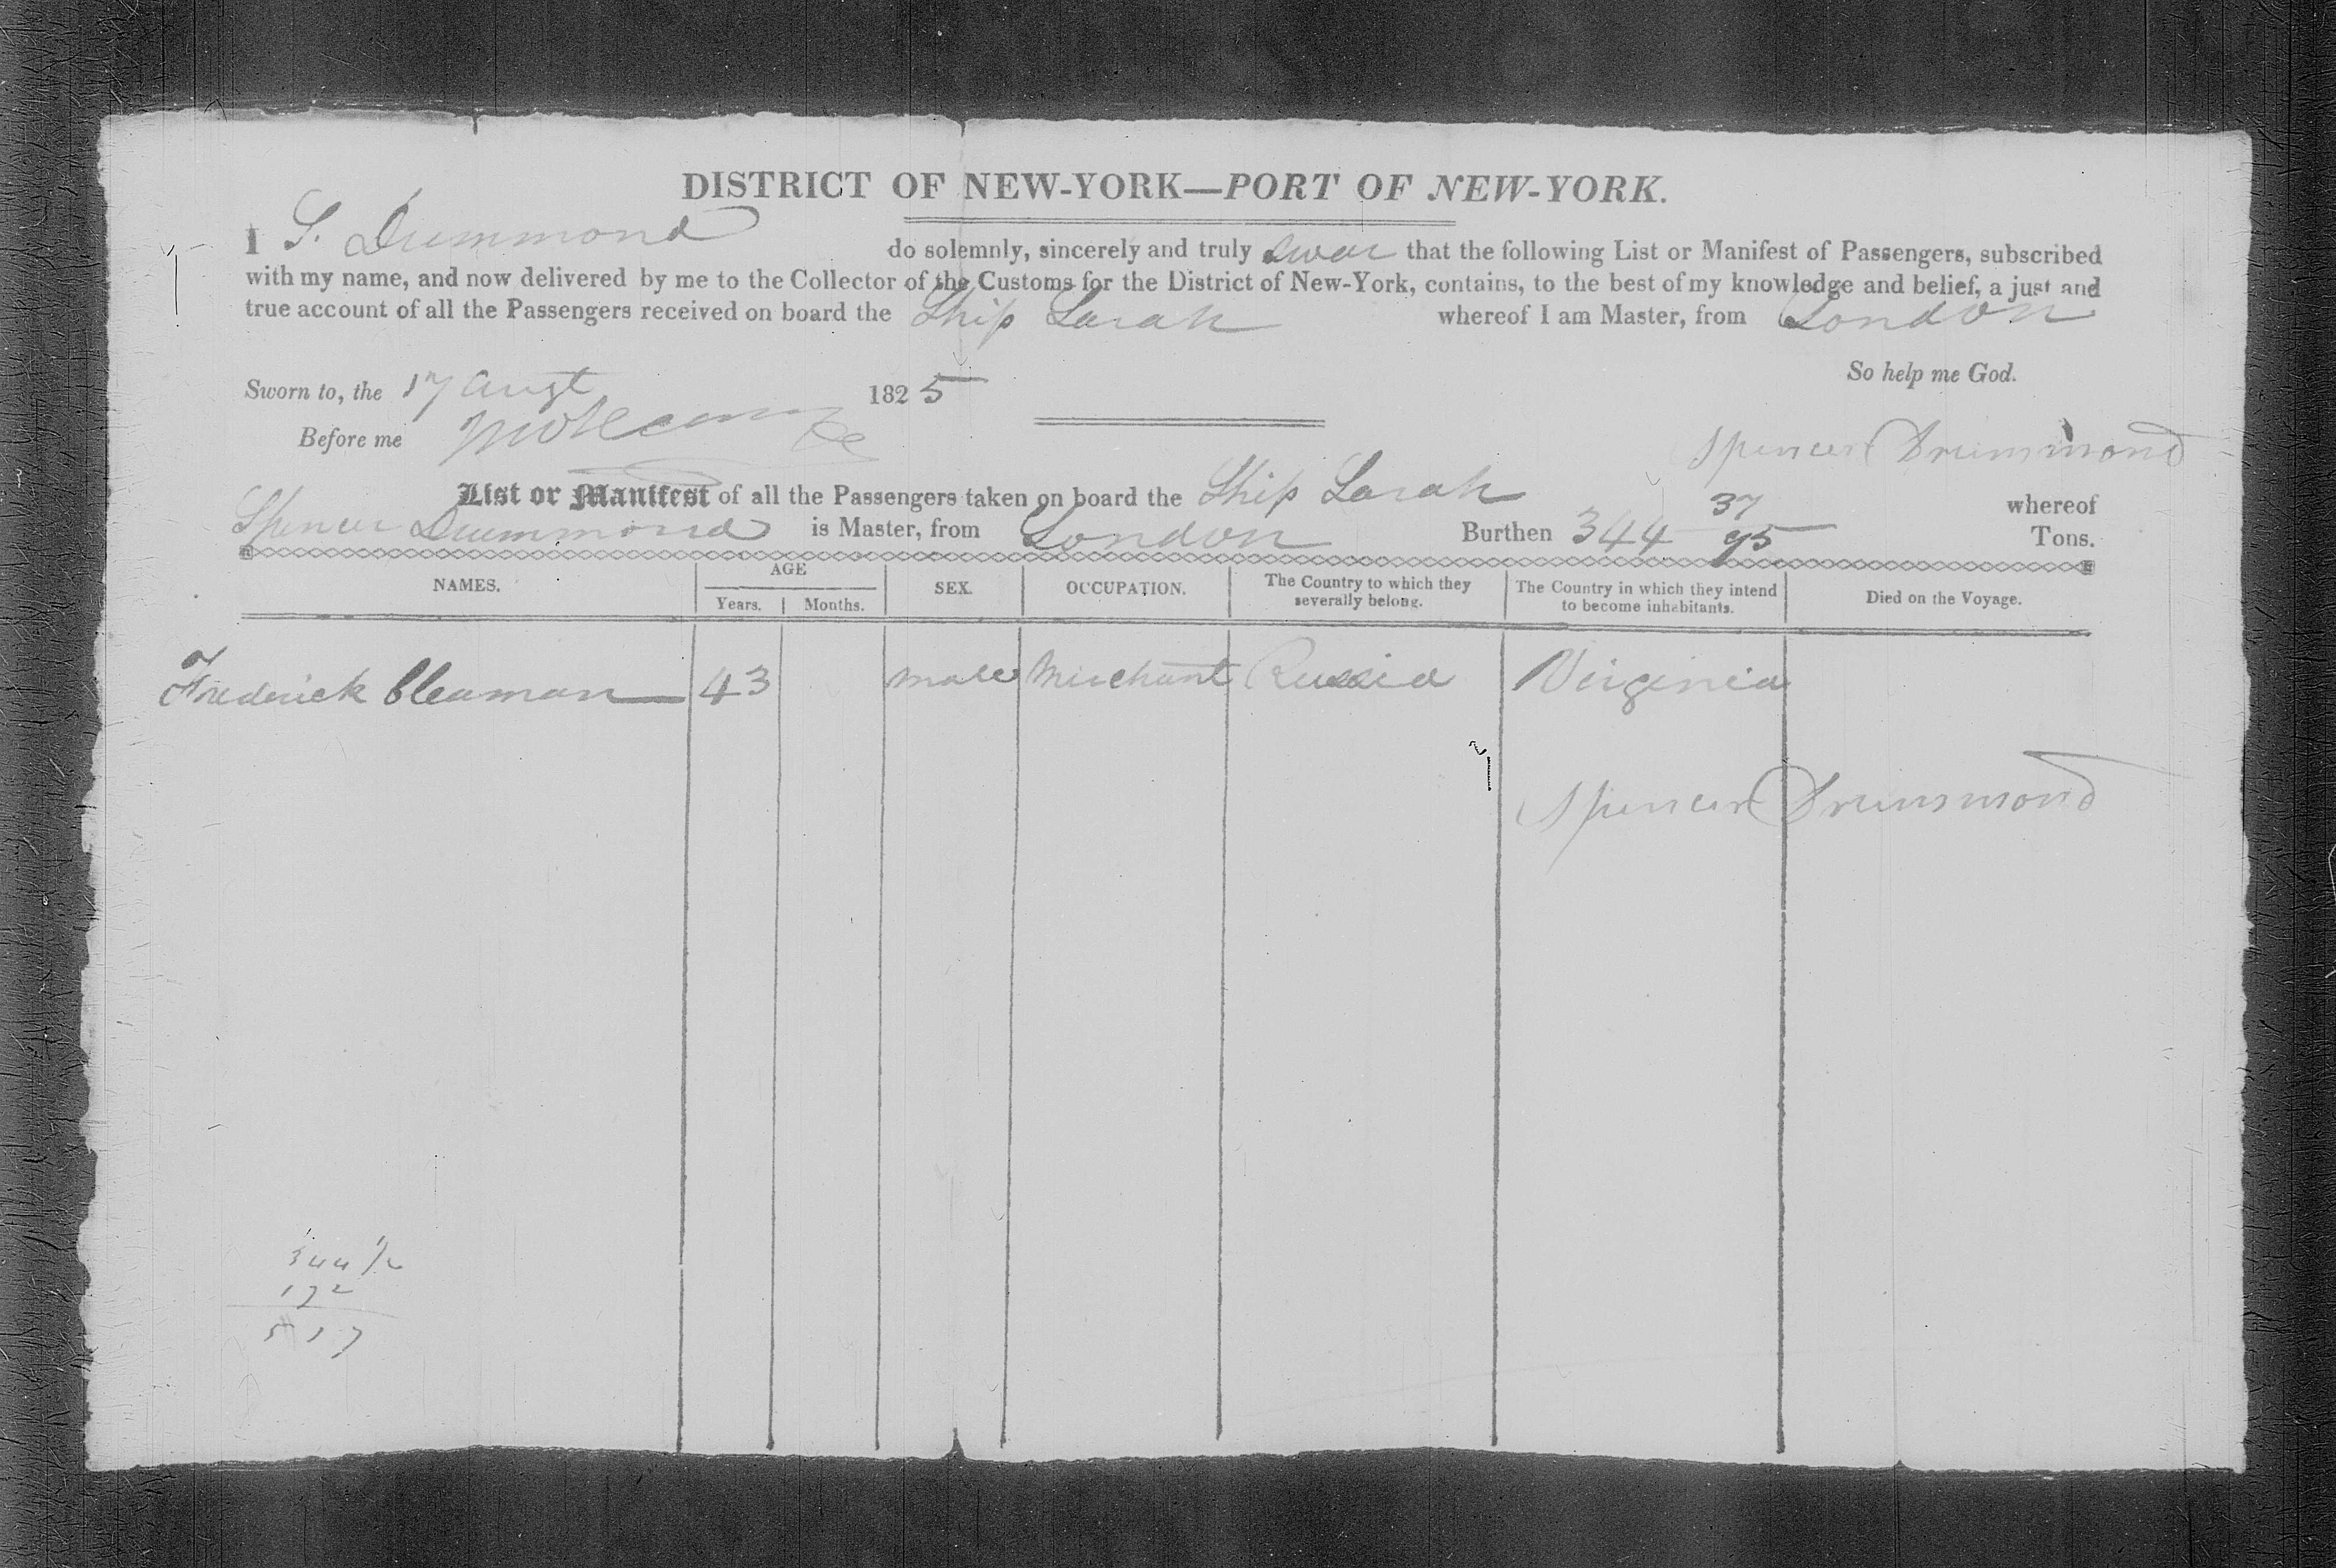 DISTRICT OF NEW-YORK—PORT OF NEW-YORK.
I S. Drummond do solemnly, sincerely and truly swear that the following List or Manifest of Passengers, subscribed
with my name, and now delivered by me to the Collector of the Customs for the District of New-York, contains, to the best of my knowledge and belief, a just and
true account of all the Passengers received on board the Ship Sarah whereof I am Master, from London
So help me God.
Sworn to, the 17 Augt 1825
Before me
Spencer Drummond
List or Manifest of all the Passengers taken on board the Ship Sarah whereof
Spencer Drummond is Master, from London Burthen 344 37/95 Tons.
NAMES. AGE Years. Months. SEX. OCCUPATION. The Country to which they severally belong. The Country in which they intend to become inhabitants. Died on the Voyage.
Frederick Cleaman 43 male Merchant Russia Virginia
Spencer Drummond
344 1/2
172
517